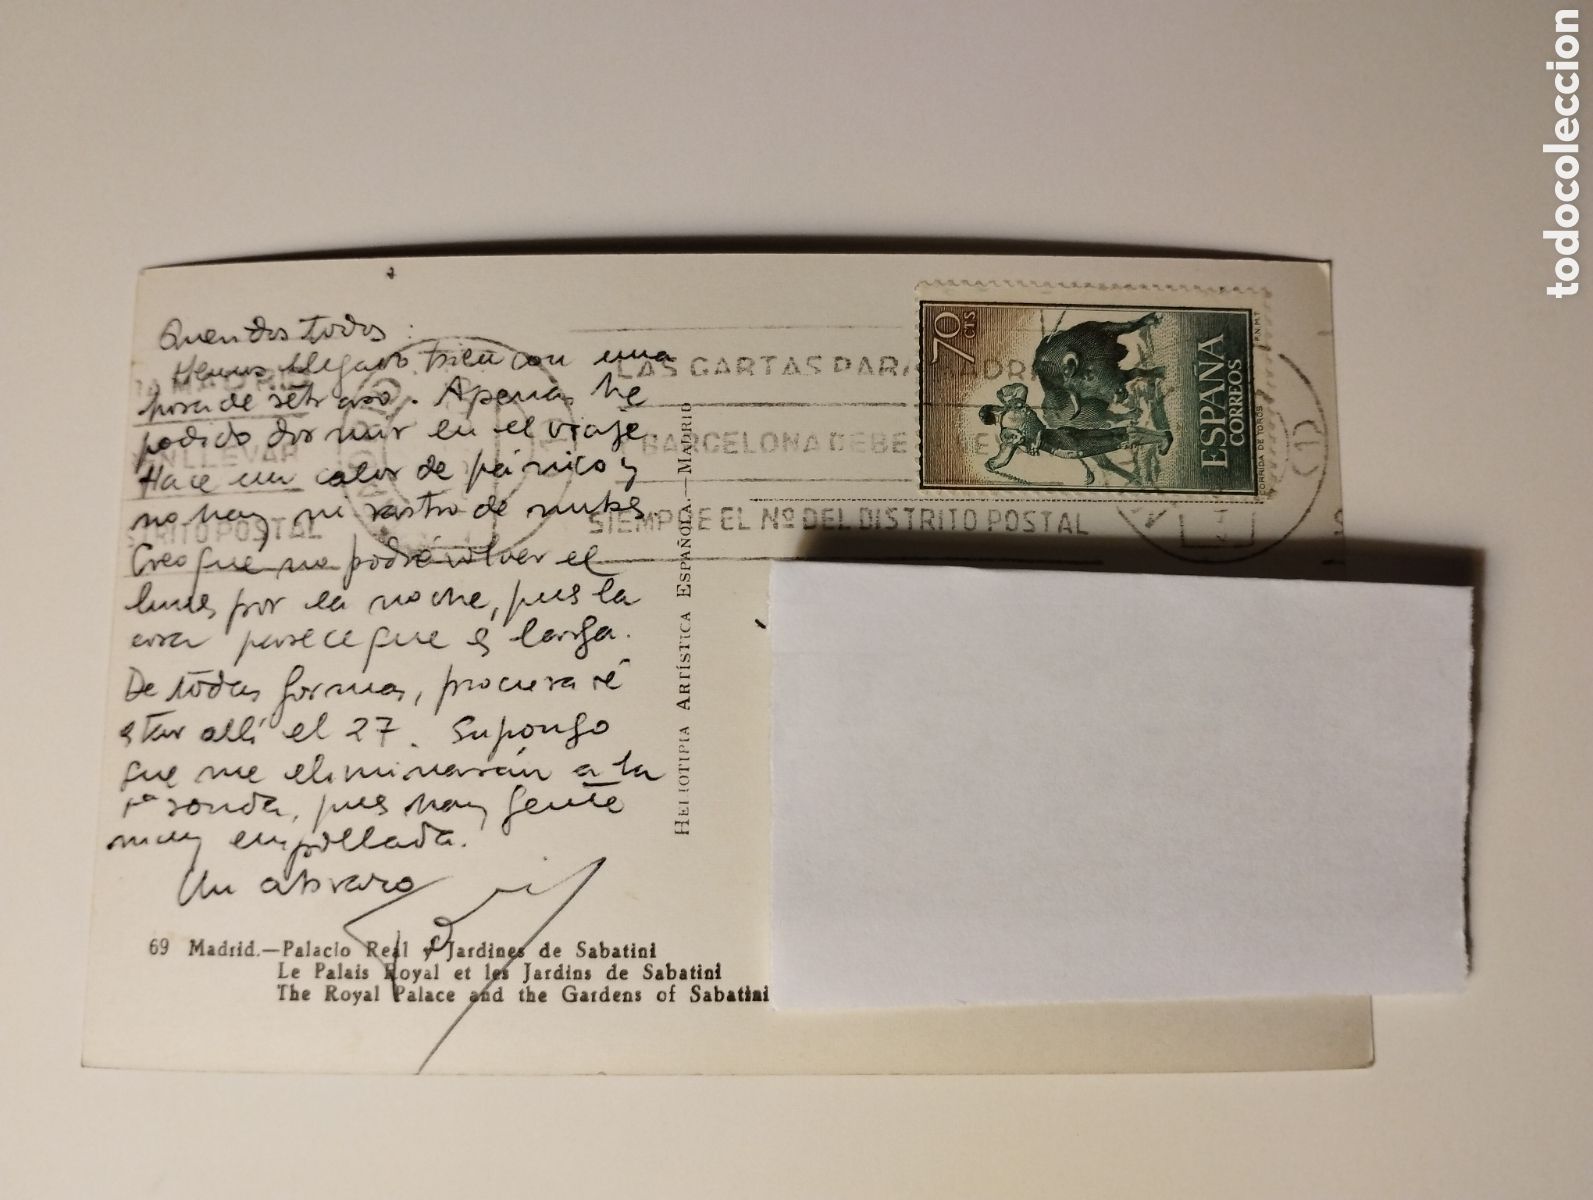 Queridos todos:
Hemos llegado bien con una
hora de retraso. Apenas he
podido dormir en el viaje
Hace un calor de pánico y
no hay ni rastro de nubes.
Creo que no podré volver el
lunes por la noche, pues la
cosa parece que es larga.
De todas formas, procuraré
estar allí el 27. Supongo
que me eliminarán a la
1ª ronda, pues hay gente
muy empollada.
Un abrazo
69 Madrid.—Palacio Real y Jardines de Sabatini
Le Palais Royal et les Jardins de Sabatini
The Royal Palace and the Gardens of Sabatini
HELIOTIPIA ARTÍSTICA ESPAÑOLA.—MADRID
LAS CARTAS PARA MADRI
BARCELONA DEBE
SIEMPRE EL Nº DEL DISTRITO POSTAL
MADRI
LLEVAR
STRITO POSTAL
70 CTS
ESPAÑA
CORREOS
CORRIDA DE TOROS
F.N.M.T
todocoleccion